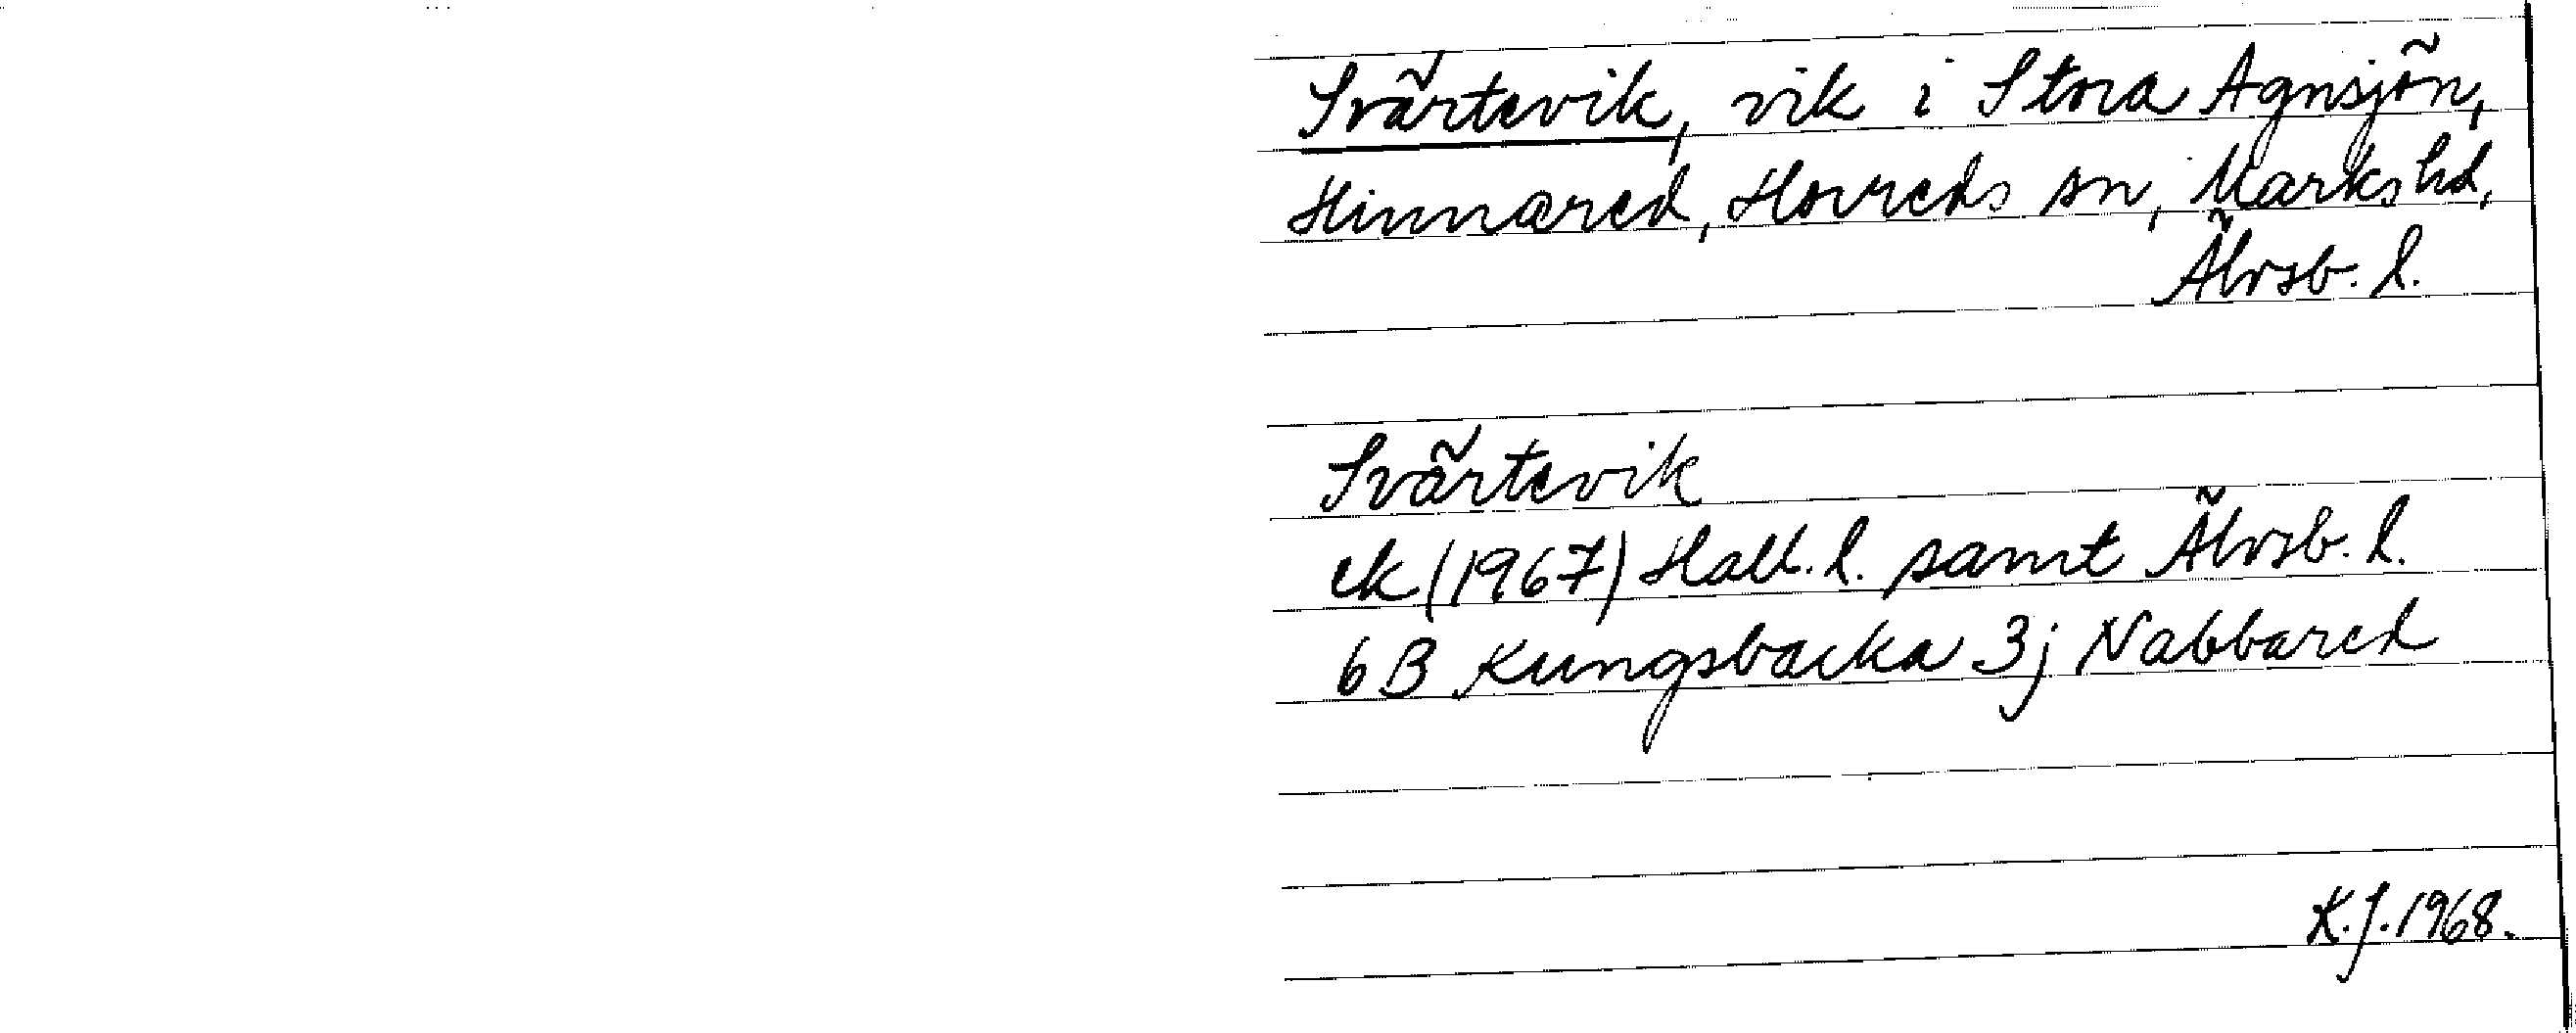 Svärtevik, vik i Stora Agnsjön,
Hinnared, Horreds sn, Marks hd,
Älvsb. l.
Svärtevik
ek (1967) Hall. l. samt Älvsb. l.
6 B Kungsbacka 3j Nabbared
K.J. 1968.